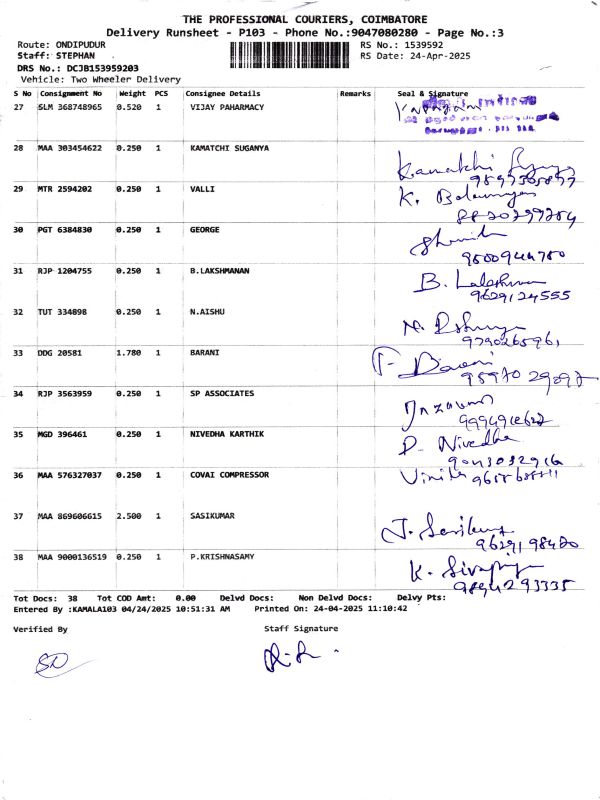 THE PROFESSIONAL COURIERS, COIMBATORE
Delivery Runsheet - P103 - Phone No.:9047080280 - Page No.:3
Route: ONDIPUDUR RS No.: 1539592
Staff: STEPHAN RS Date: 24-Apr-2025
DRS No.: DCJB153959203
Vehicle: Two Wheeler Delivery
S No Consignment No Weight PCS Consignee Details Remarks Seal & Signature
27 SLM 368748965 0.520 1 VIJAY PAHARMACY
28 MAA 303454622 0.250 1 KAMATCHI SUGANYA Kamatchi
29 MTR 2594202 0.250 1 VALLI K.
8820299284
30 PGT 6384830 0.250 1 GEORGE
9500944750
31 RJP 1204755 0.250 1 B.LAKSHMANAN B.
9629124555
32 TUT 334898 0.250 1 N.AISHU N.
33 DDG 20581 1.780 1 BARANI
34 RJP 3563959 0.250 1 SP ASSOCIATES
35 MGD 396461 0.250 1 NIVEDHA KARTHIK P. Nivedha
9043032916
36 MAA 576327037 0.250 1 COVAI COMPRESSOR
37 MAA 869606615 2.500 1 SASIKUMAR J.
9629198420
38 MAA 9000136519 0.250 1 P.KRISHNASAMY K.
9894293335
Tot Docs: 38 Tot COD Amt: 0.00 Delvd Docs: Non Delvd Docs: Delvy Pts:
Entered By :KAMALA103 04/24/2025 10:51:31 AM Printed On: 24-04-2025 11:10:42
Verified By Staff Signature